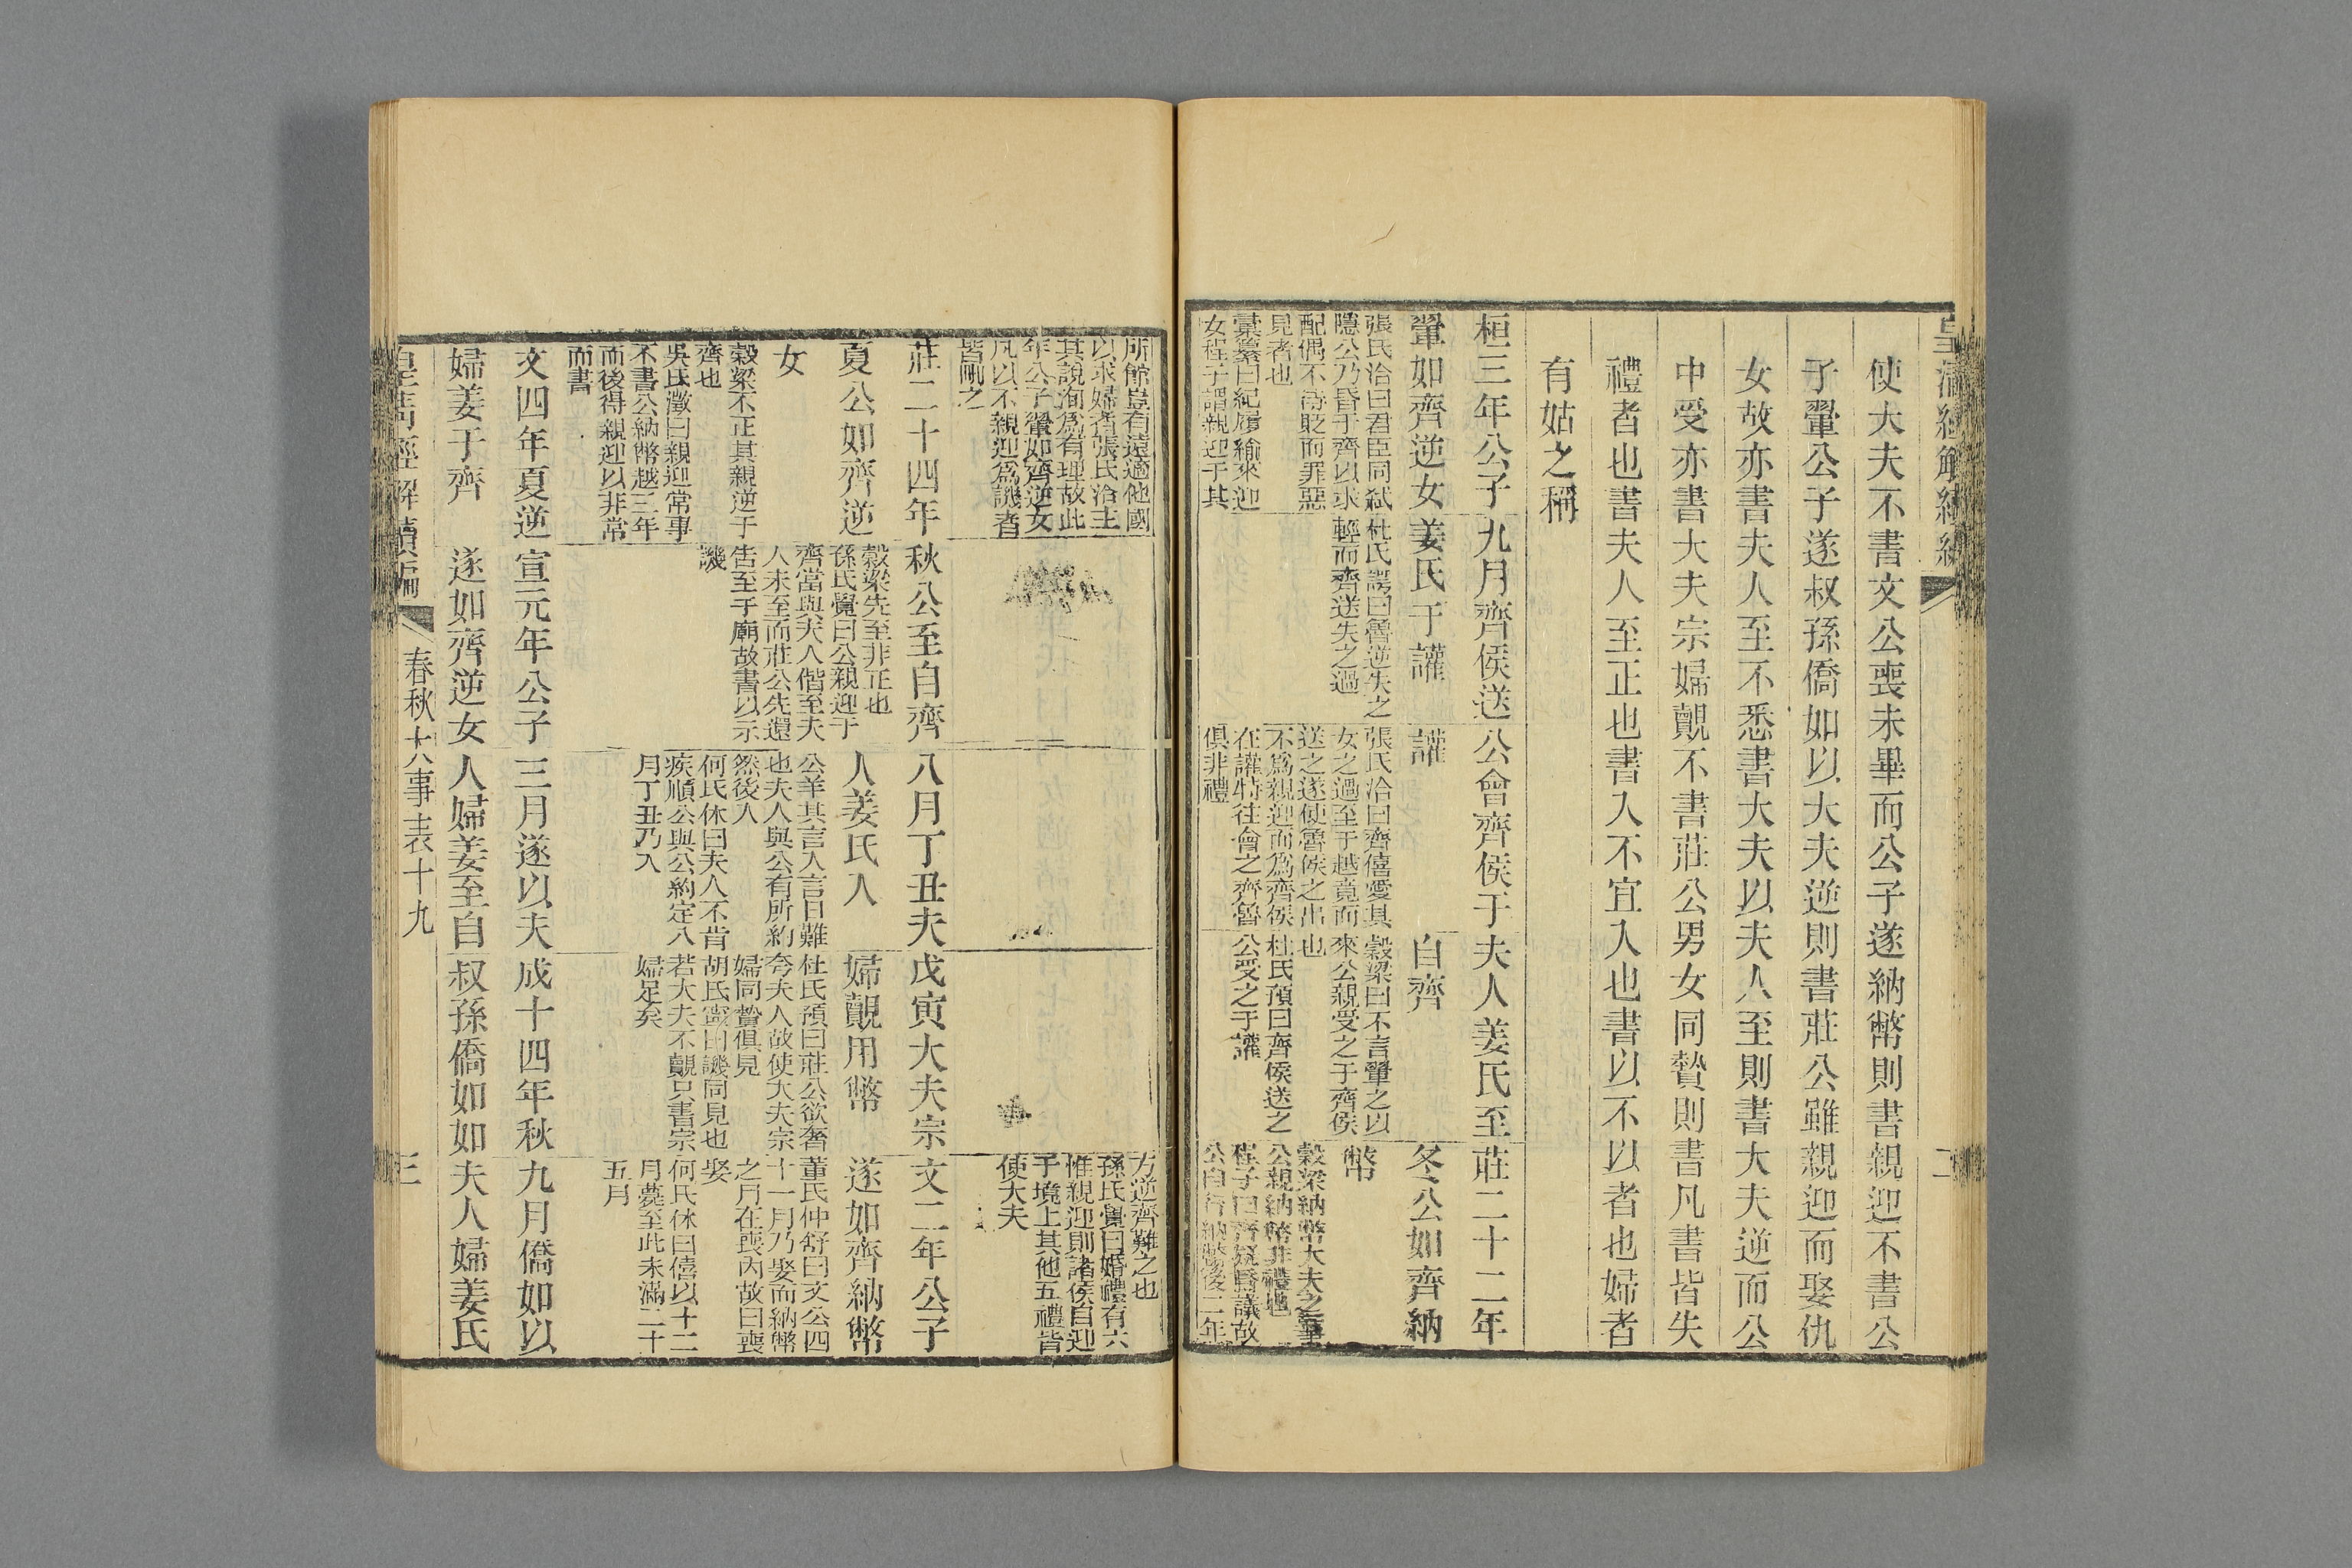 使大夫不書文公喪未畢而公子遂納幣則書親迎不書公
子翬公子遂叔孫僑如以大夫逆則書莊公雖親迎而娶仇
女故亦書夫人至不悉書大夫以夫人至則書大夫逆而公
中受亦書大夫宗婦覿不書莊公男女同贄則書凡書皆失
禮者也書夫人至正也書入不宜入也書以不以者也婦者
有姑之稱
桓三年公子
翬如齊逆女
張氏洽曰君臣同弑
隱公乃昏于齊以求
配偶不待貶而罪惡
見者也
彙纂曰紀履緰來迎
女程子謂親迎于其
九月齊侯送
姜氏于讙
杜氏諤曰魯逆失之
輕而齊送失之過
公會齊侯于
讙
張氏洽曰齊僖愛其
女之過至于越竟而
送之遂使魯侯之出
不爲親迎而爲齊侯
在讙特往會之齊魯
俱非禮
夫人姜氏至
自齊
穀梁曰不言翬之以
來公親受之于齊侯
也
杜氏預曰齊侯送之
公受之于讙
莊二十二年
冬公如齊納
幣
穀梁納幣大夫之事
公親納幣非禮也
程子曰齊疑昏議故
公自行納幣後二年
二
所館豈有遠適他國
以求婦者張氏洽主
其說洵爲有理故此
年公子翬如齊逆女
凡以不親迎爲譏者
皆刪之
方逆齊難之也
孫氏覺曰婚禮有六
惟親迎則諸侯自迎
于境上其他五禮皆
使大夫
莊二十四年
夏公如齊逆
女
穀梁不正其親逆于
齊也
吳氏澂曰親迎常事
不書公納幣越三年
而後得親迎以非常
而書
秋公至自齊
穀梁先至非正也
孫氏覺曰公親迎于
齊當與夫人偕至夫
人未至而莊公先還
告至于廟故書以示
譏
八月丁丑夫
人姜氏入
公羊其言入言日難
也夫人與公有所約
然後入
何氏休曰夫人不肯
疾順公與公約定八
月丁丑乃入
戊寅大夫宗
婦覿用幣
杜氏預曰莊公欲奢
夸夫人故使大夫宗
婦同贄俱見
胡氏寗曰譏同見也
若大夫不覿只書宗
婦足矣
文二年公子
遂如齊納幣
董氏仲舒曰文公四
十一月乃娶而納幣
之月在喪內故曰喪
娶
何氏休曰僖以十二
月薨至此未滿二十
五月
文四年夏逆
婦姜于齊
宣元年公子
遂如齊逆女
三月遂以夫
人婦姜至自
成十四年秋
叔孫僑如如
九月僑如以
夫人婦姜氏
皇清經解續編
春秋大事表十九
三